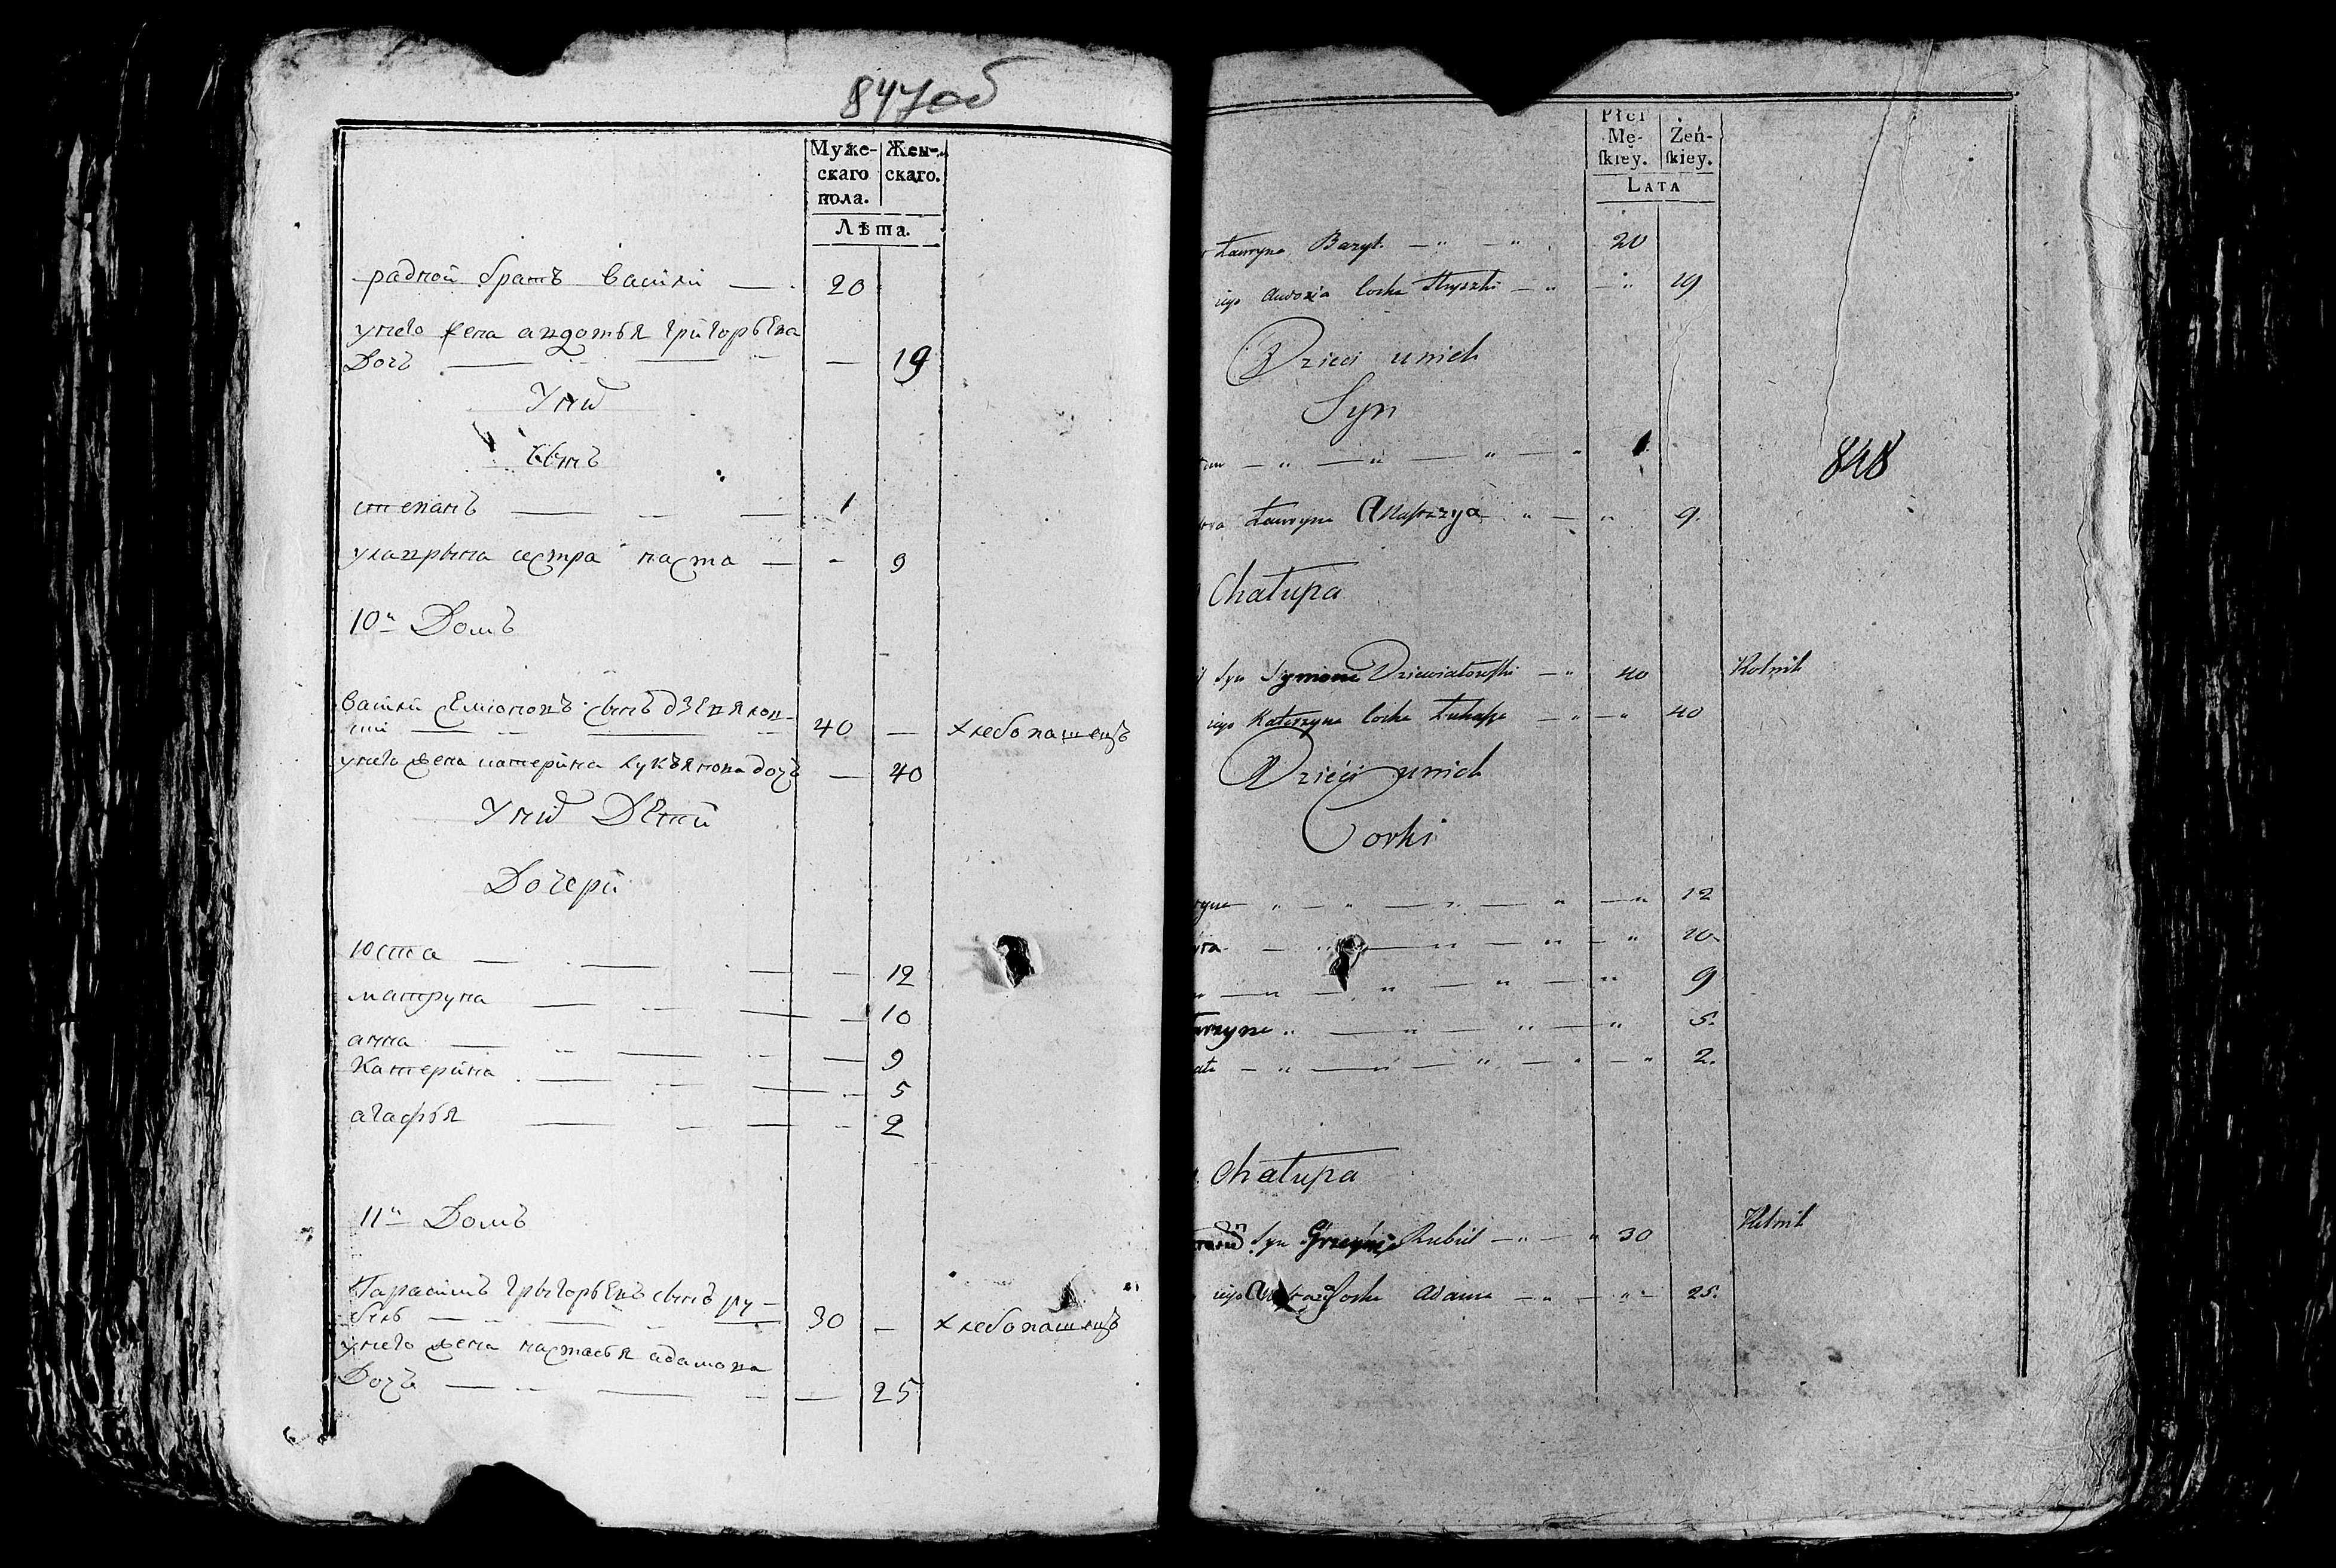 847 об
Муже- Жен-
скаго скаго.
пола.
Лѣта.
радной братъ василй — 20
унего жена авдотья григорьева
Дочь — — 19
У них
сынъ
степанъ — — 1
улаврына сестра наста — - 9
10й Домъ
василй Семіоновъ сынъ дзевялтов-
ский — 40 — хлебопашецъ
унего жена катерина лукъянова дочь — 40
У них Дети
Дочери
юста — 12
матруна — 10
анна — 9
Катерина — 5
агафья — 2
11й Домъ
Гарасимъ григорьевъ сынъ ру-
биль — 30 — хлебопашецъ
унего жена настасья адамова
Дочь — — 25
Płci
Mę- Żeń-
ſkiey. ſkiey.
LATA
Ławryna Bazyl. — 20
iego Audozia Corka Hryszki — 19
Dzieci unich
Syn
1
848
Ławryna Anastazya — 9.
Chałupa
Syn Symiona Dziewiatowski — 40 Rolnik
iego Katarzyna Corka Łukasza — 40
Dzieci unich
Corki
12
10
9
5.
2.
Chałupa
Syn Rubiel — 30 Rolnik
iego Corka Adama — 25.